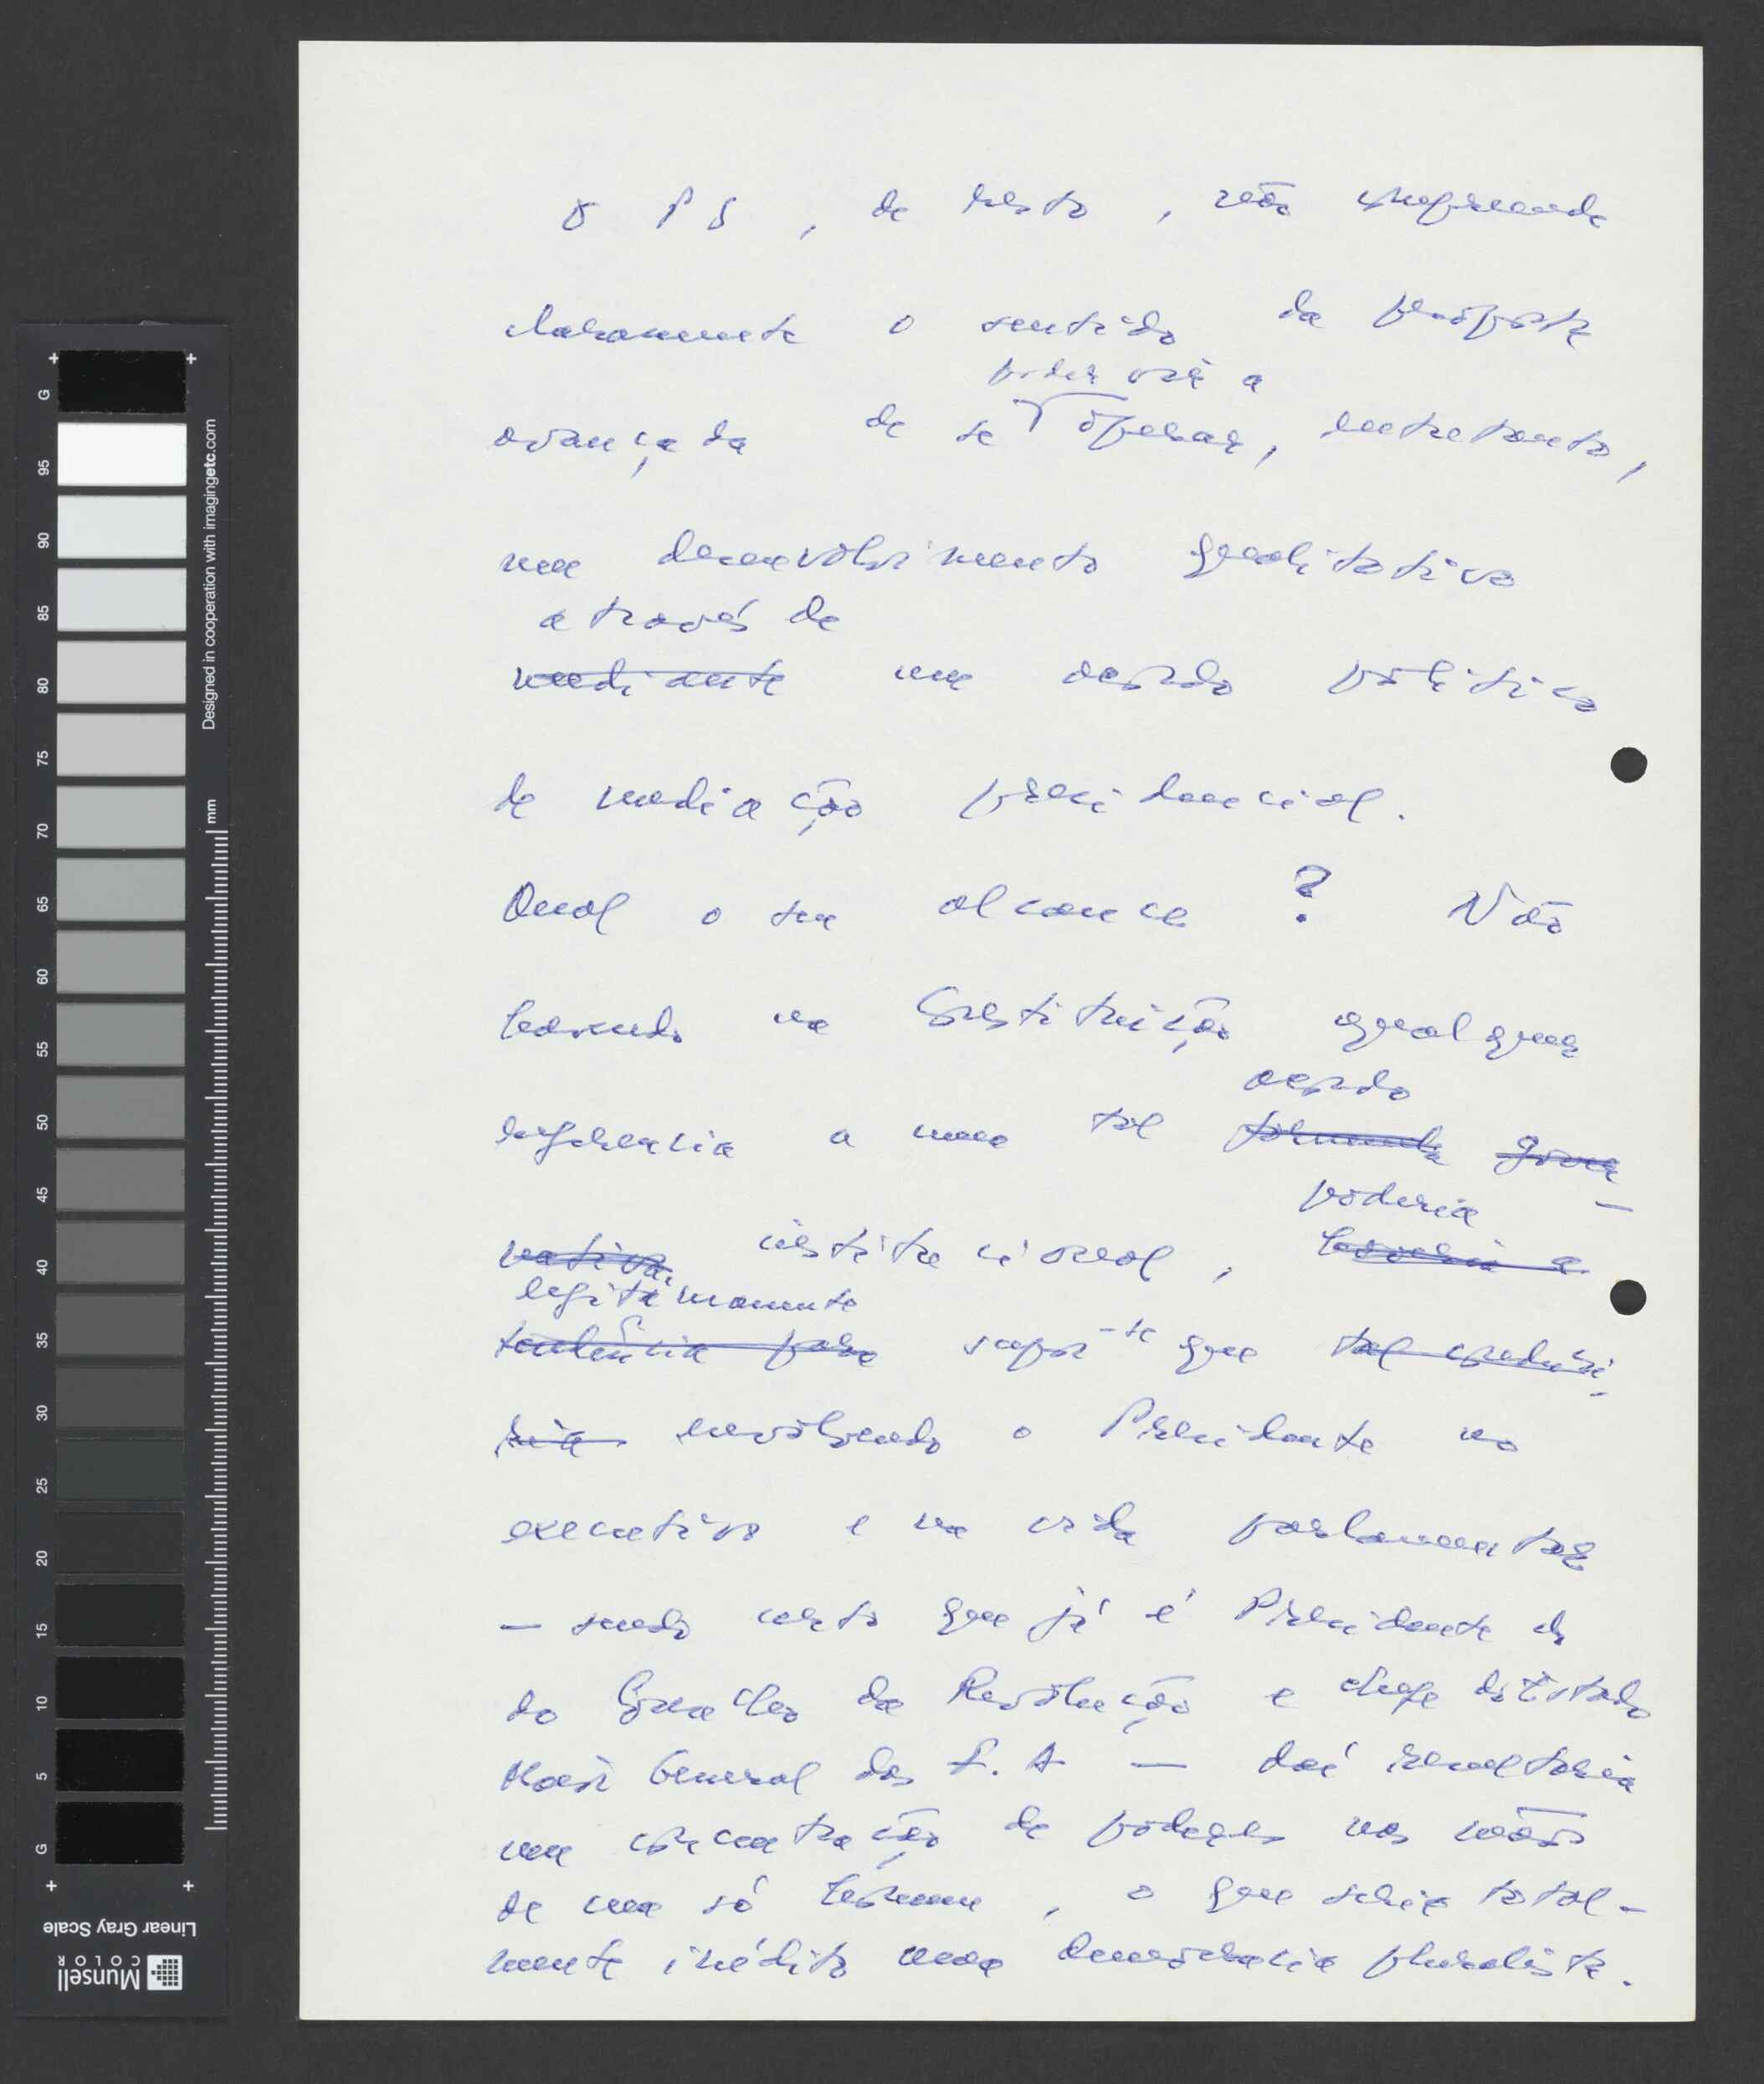 O PS, de resto, não compreende
claramente o sentido da proposta
poder vir a
avançada de se operar, entretanto,
um desenvolvimento qualitativo
através de
mediante um acordo político
de mediação presidencial.
Qual o seu alcance? Não
havendo na Constituição qualquer
acordo
referência a um tal formula gover-
poderia
nativa, institucional, haveria a
legitimamente
tendência para supor-se que tal conduzi-
ria envolvendo o Presidente no
executivo e na vida parlamentar
— sendo certo que já é Presidente
do Conselho da Revolução e chefe do Estado
Maior General das F. A — daí resultaria
uma concentração de poderes nas mãos
de um só homem, o que seria total-
mente inédito numa democracia pluralista.
Designed in cooperation with imagingetc.com
mm
G
95
90
85
80
75
70
65
60
55
50
45
40
35
30
25
20
15
10
5
G
Linear Gray Scale
Munsell
COLOR